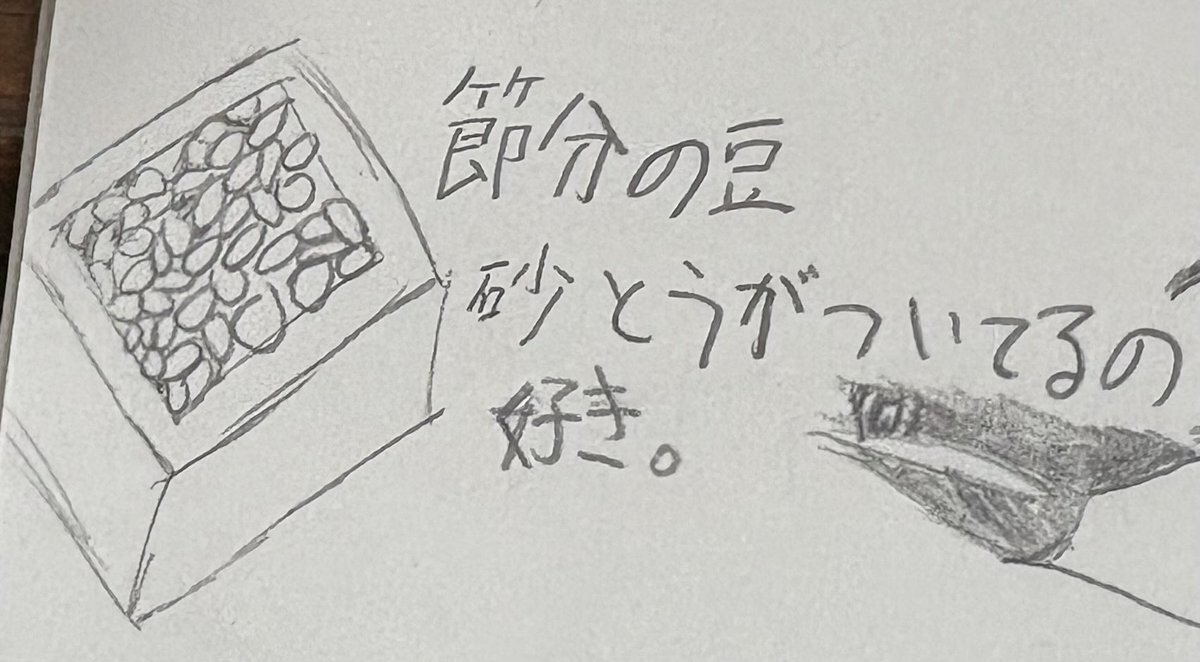 節分の豆
砂とうがついてるの
好き。